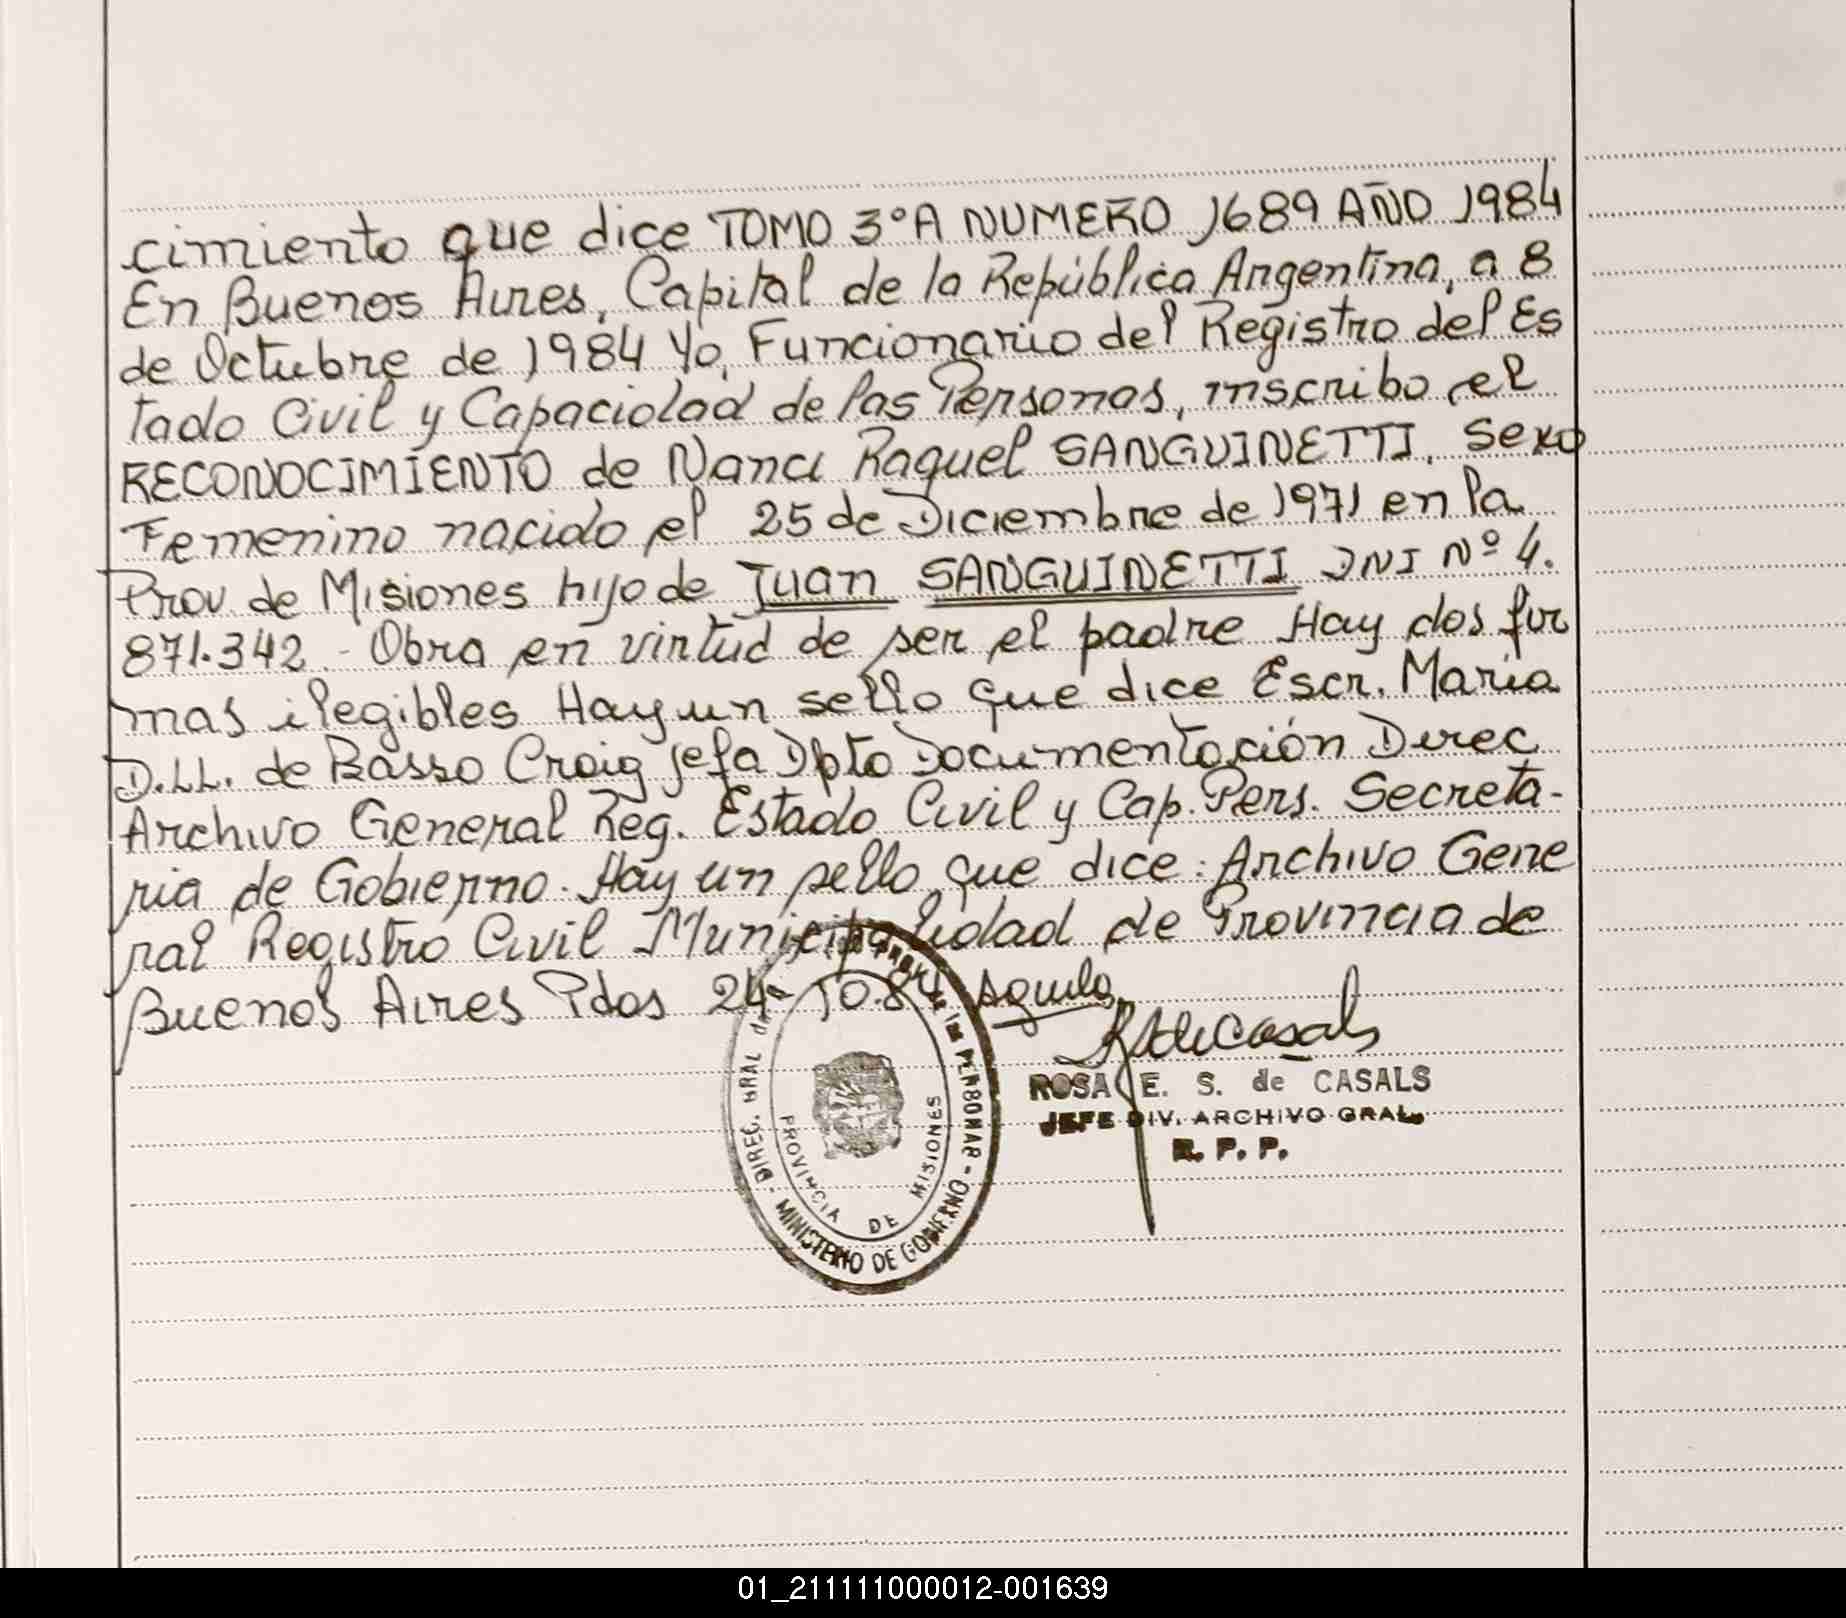 cimiento que dice TOMO 3º A NUMERO 1689 AÑO 1984
En Buenos Aires, Capital de la República Argentina, a 8
de Octubre de 1984 Yo, Funcionario del Registro del Es
tado Civil y Capacidad de las Personas, inscribo el
RECONOCIMIENTO de Nanci Raquel SANGUINETTI, Sexo
Femenino nacido el 25 de Diciembre de 1971 en la
Prov de Misiones hijo de Juan SANGUINETTI DNI Nº 4.
871.342.- Obra en virtud de ser el padre Hay dos fir
mas ilegibles Hay un sello que dice Escr. Maria
D.LL. de Basso Craig Jefa Dpto Documentación Direc
Archivo General Reg. Estado Civil y Cap. Pers. Secreta-
ria de Gobierno. Hay un sello que dice: Archivo Gene
ral Registro Civil Municipalidad de Provincia de
Buenos Aires Pdas 24-10.84
ROSA E. S. de CASALS
JEFE DIV. ARCHIVO GRAL.
R. P. P.
DIREC. GRAL
MINISTERIO DE GOBIERNO
PROVINCIA DE MISIONES
01_211111000012-001639